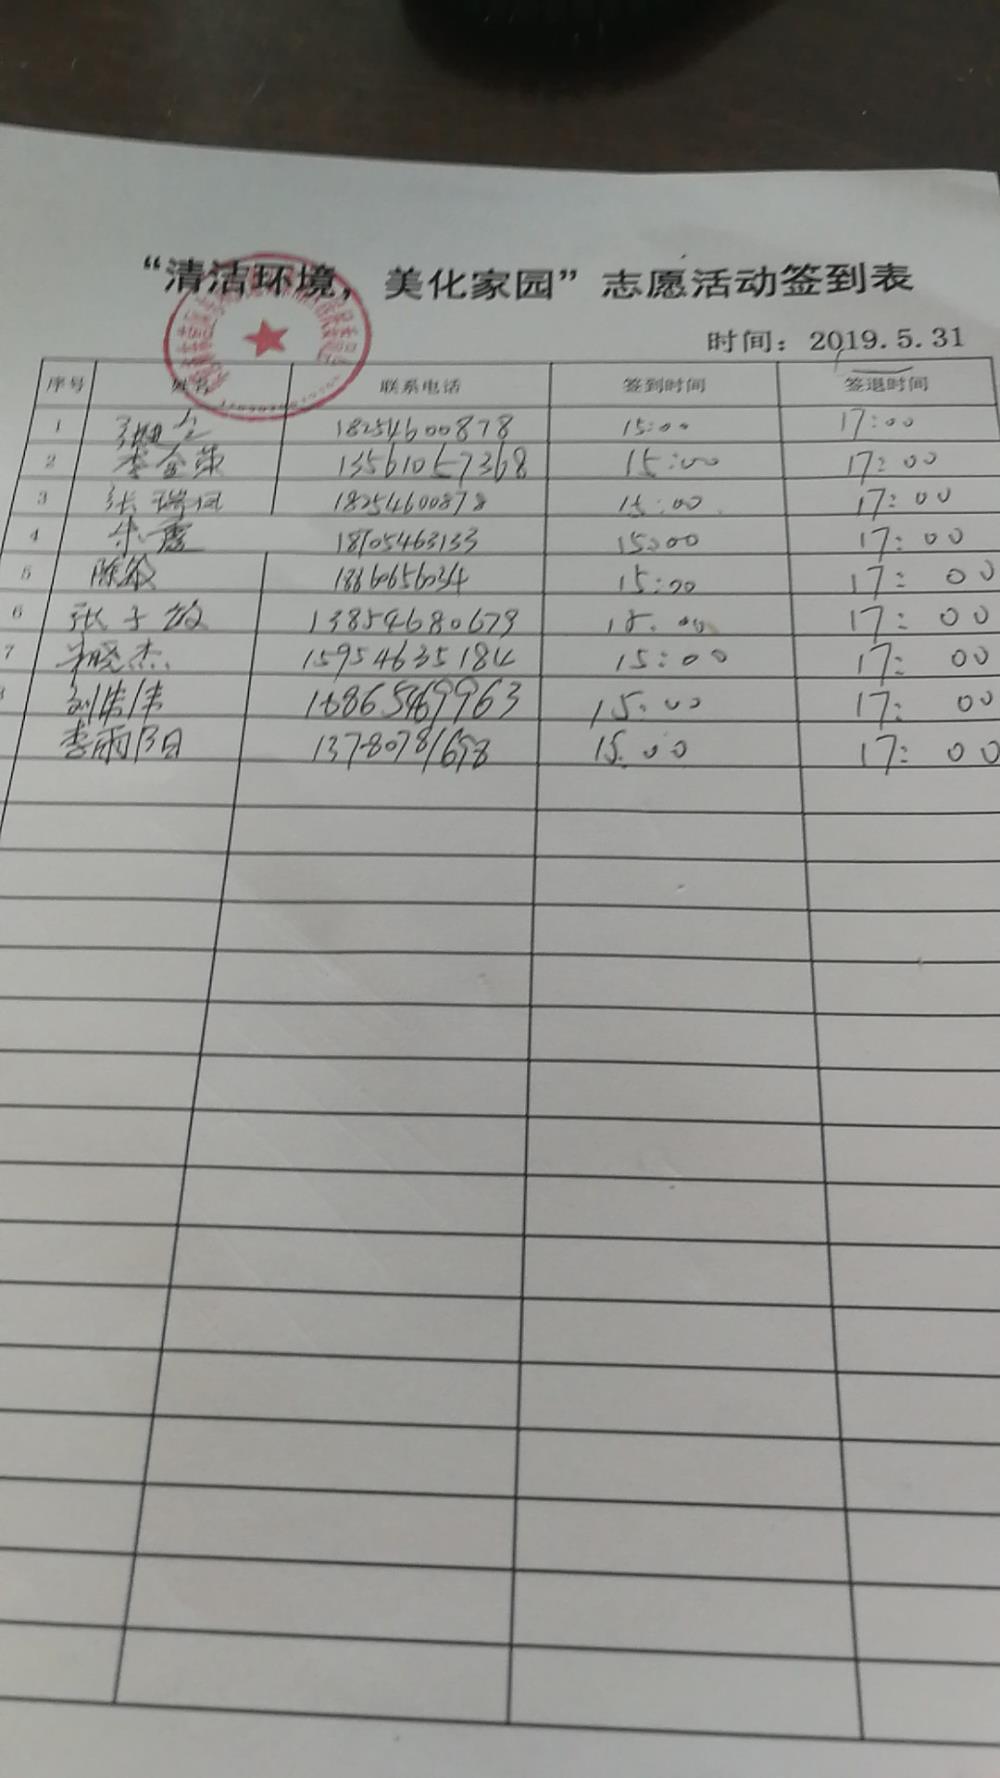 “清洁环境，美化家园”志愿活动签到表
时间：2019.5.31
序号 姓名 联系电话 签到时间 签退时间
1 18254600878 15:00 17:00
2 李金荣 13561057368 15:00 17:00
3 张瑞凤 18254600878 15:00 17:00
4 18705463133 15:00 17:00
5 陈敏 18660656034 15:00 17:00
6 张子敏 13854680679 15:00 17:00
7 晓杰 15954635184 15:00 17:00
刘伟伟 15:00 17:00
李雨阳 15:00 17:00